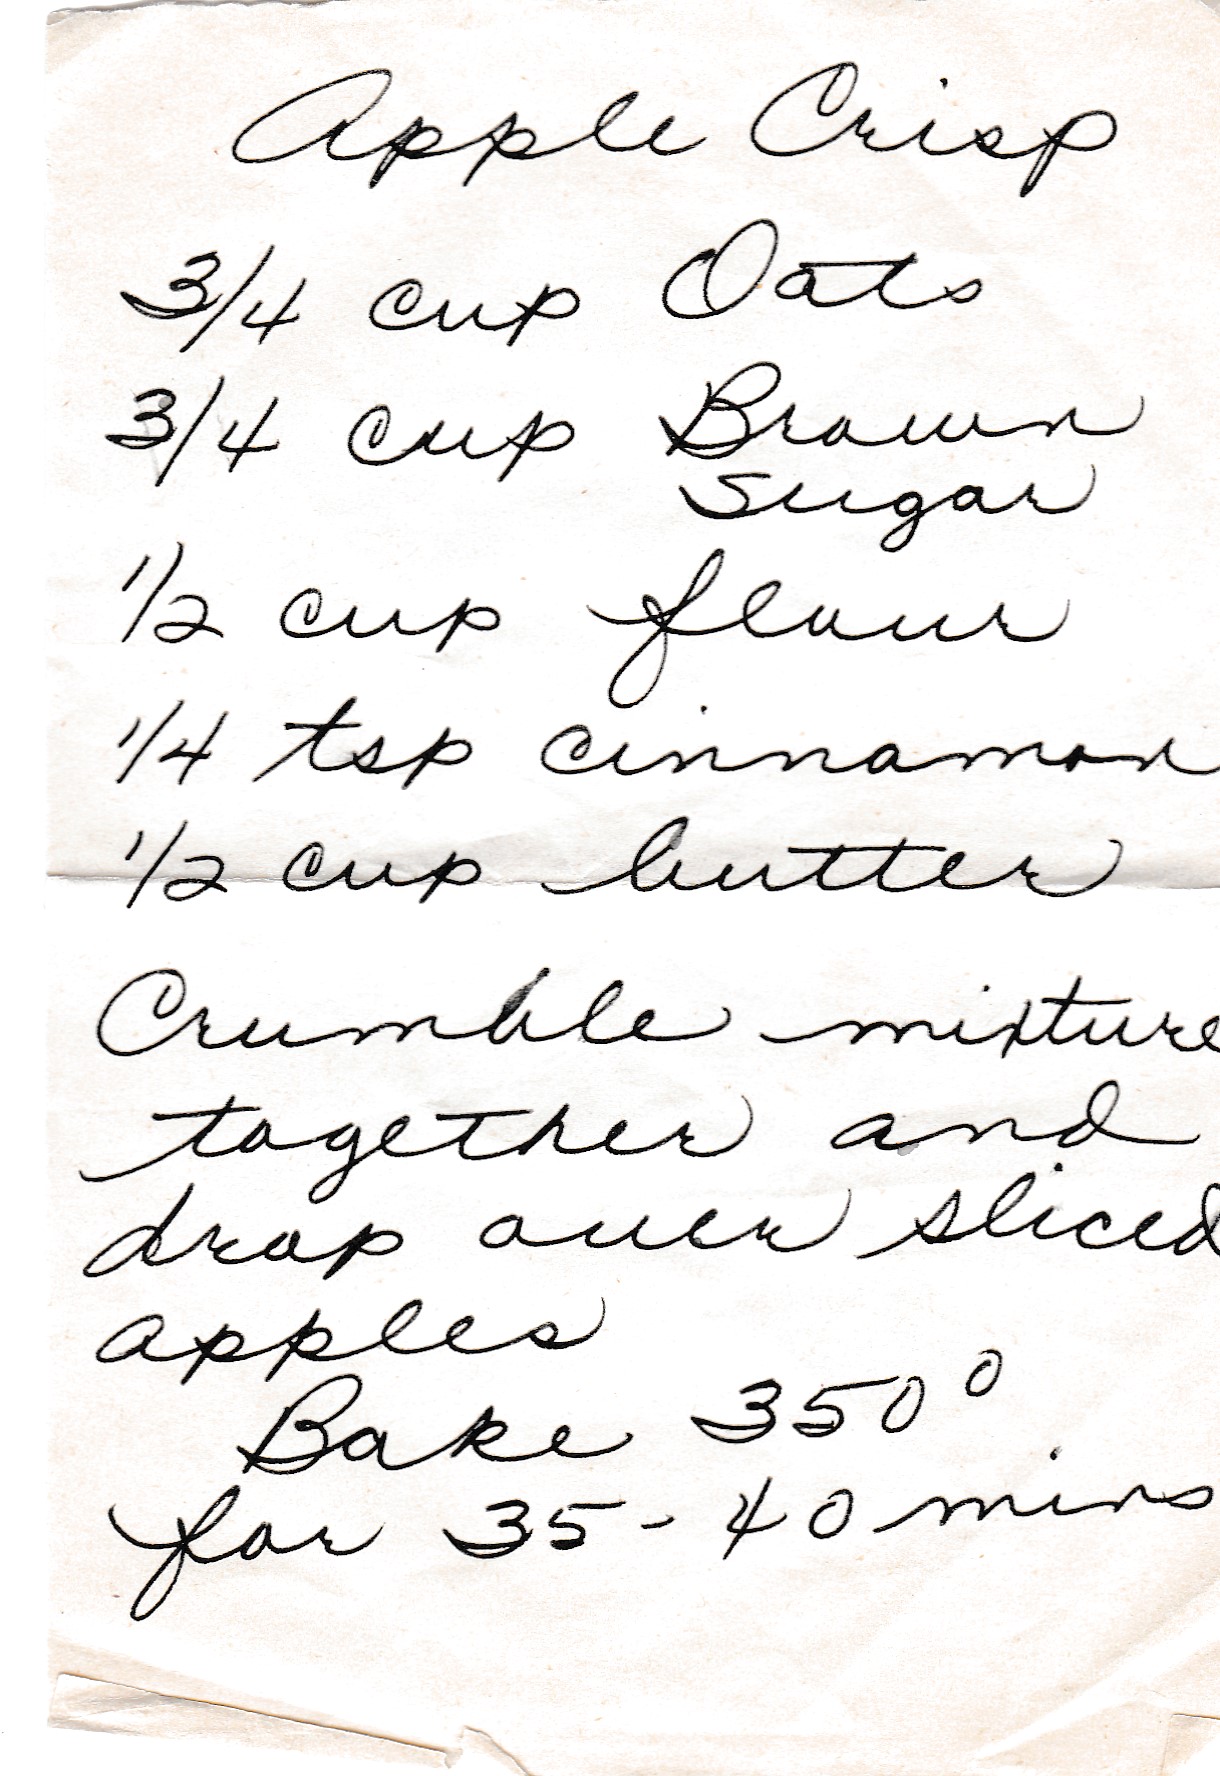 Apple Crisp
3/4 cup Oats
3/4 cup Brown
Sugar
1/2 cup flour
1/4 tsp cinnamon
1/2 cup butter
Crumble mixture
together and
drop over sliced
apples
Bake 350°
for 35-40 mins